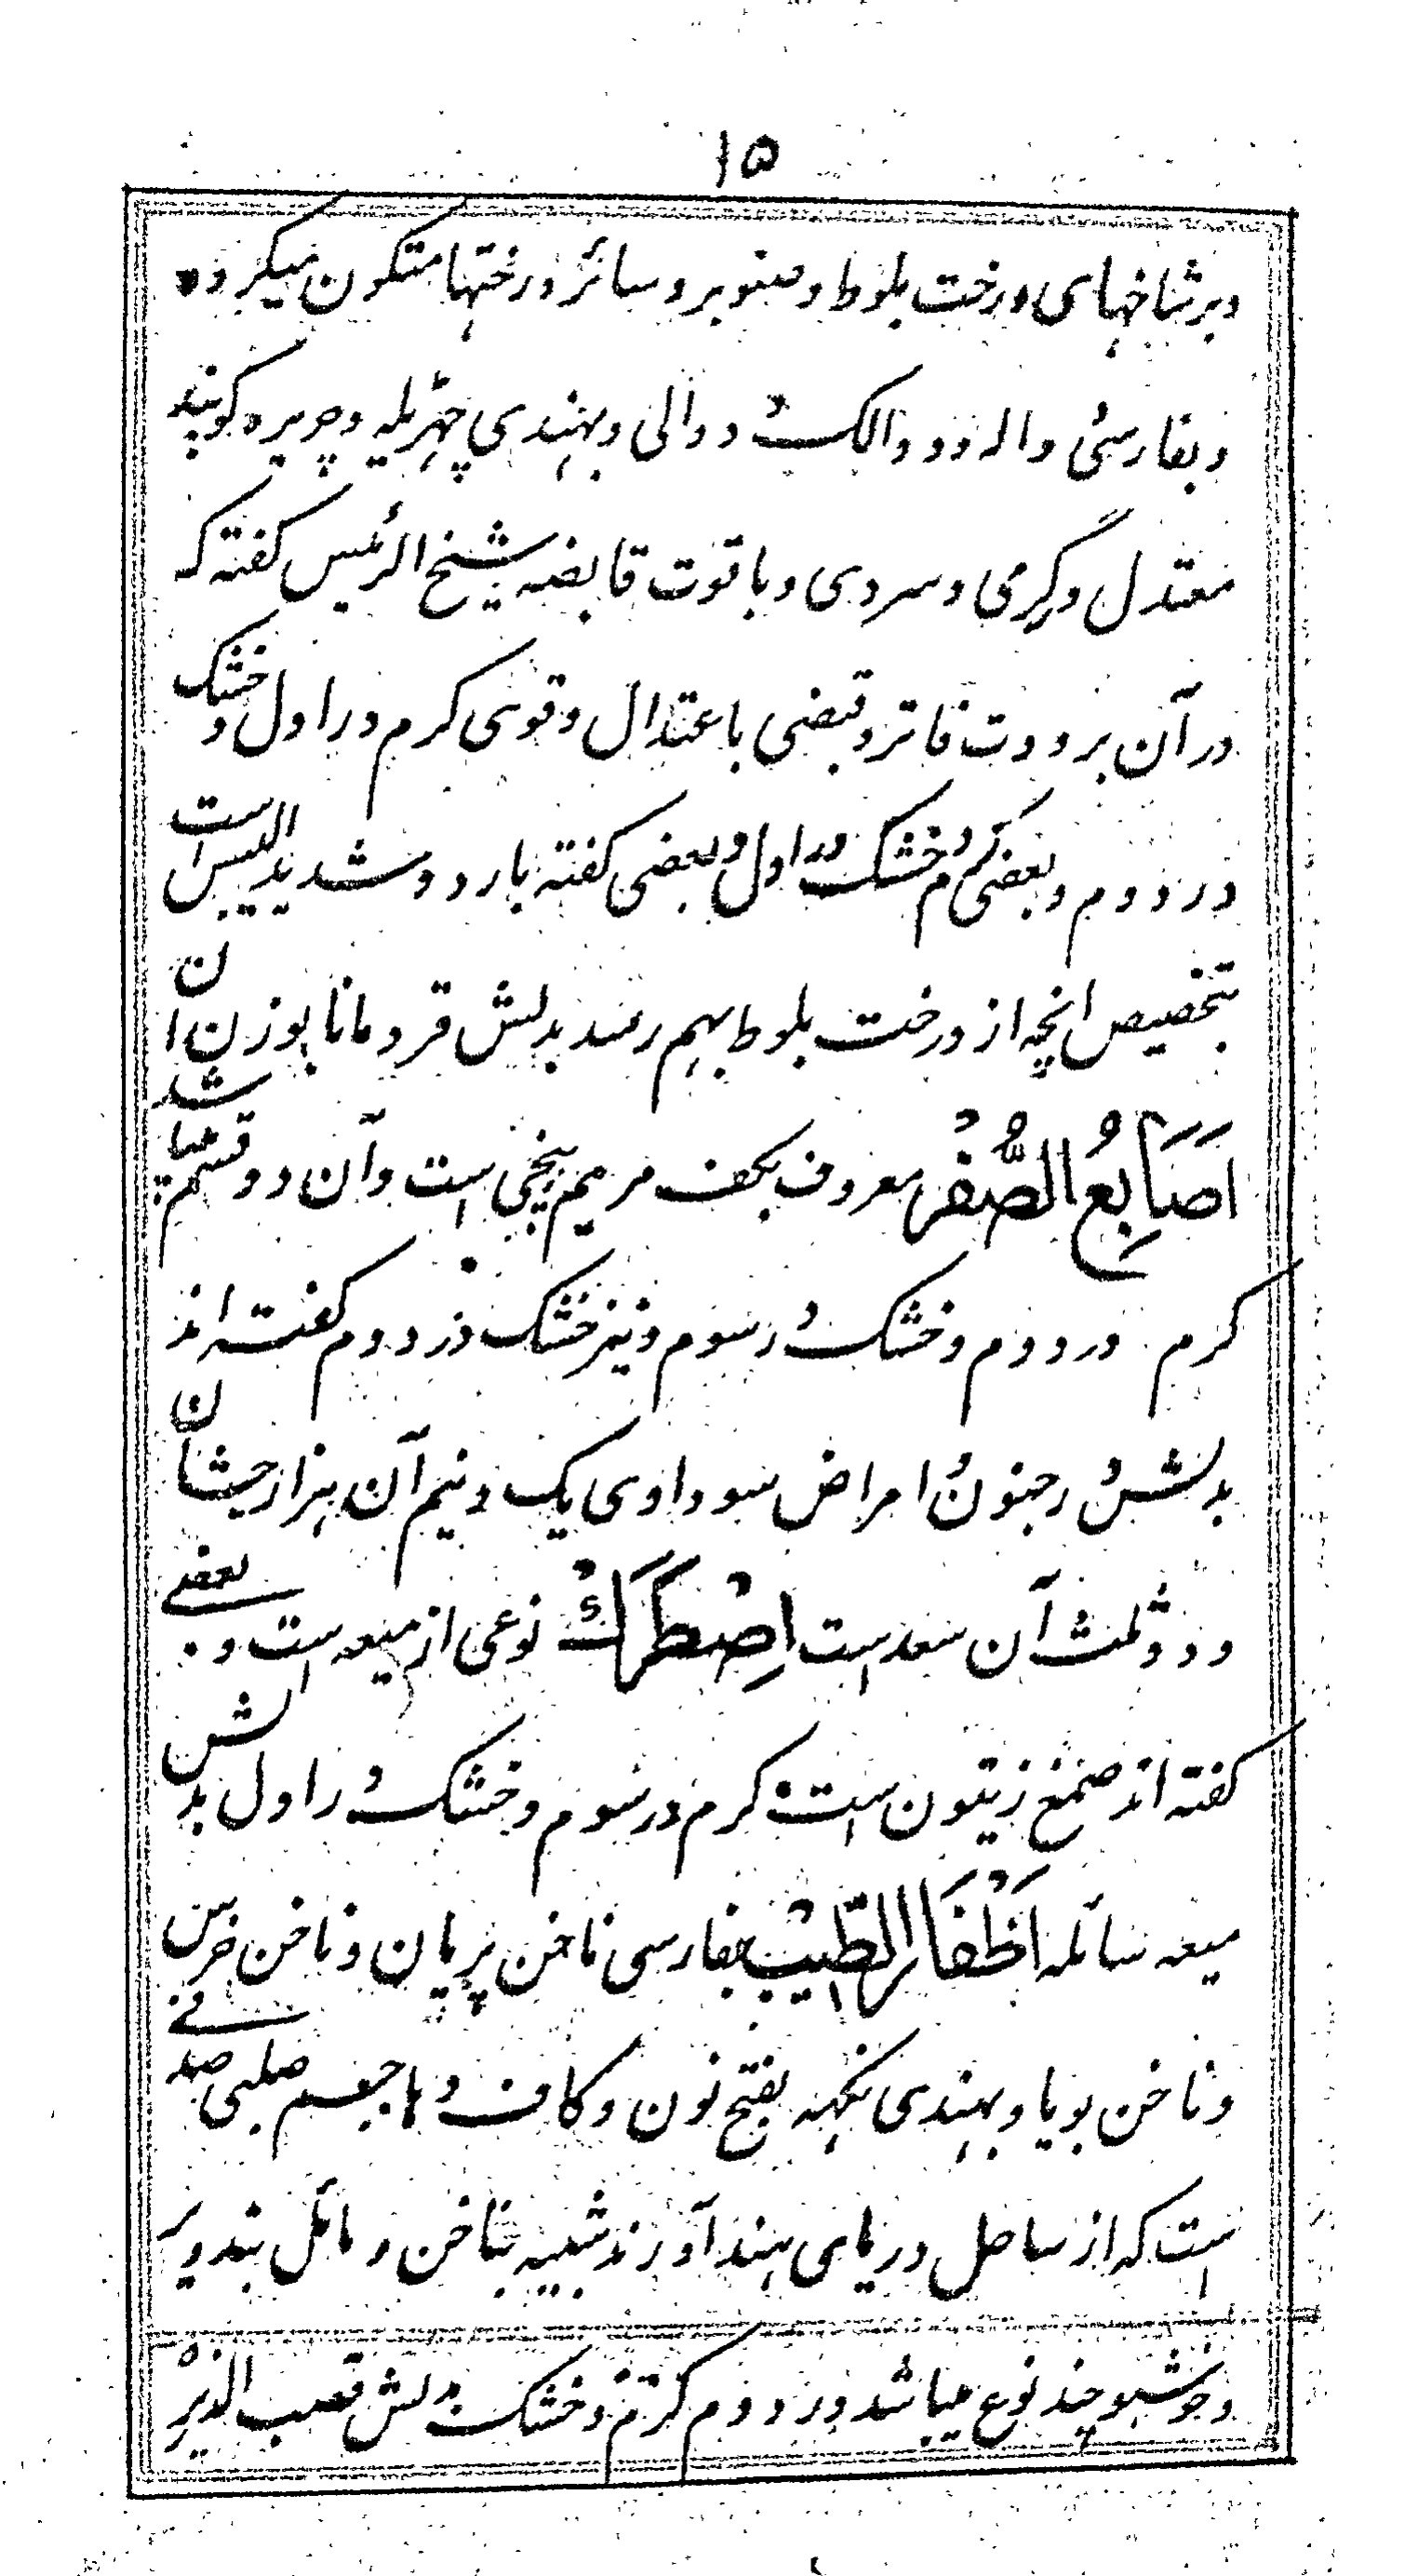 ۱۵
وبر شاخهای درخت بلوط و صنوبر و سائر درختها متکون میکردد
و بفارسی دواله و دوالک و دوالی و بهندی چهڑیله و چریره کویند
معتدل در گرمی و سردی و با قوت قابضه شیخ الرئیس کفته که
در آن برودت فاتر و قبضی باعتدال و قوی کرم در اول و خشک
در دوم و بعضی کرم و خشک در اول و بعضی کفته بارد و شدید الیبس است
بتخصیص انچه از درخت بلوط بهم رسد بدلش قردمانا بوزن ان
اَصَابِعُ الصُّفْرُ معروف بکف مریم بیخی است و آن دو قسم میباشد
کرم در دوم و خشک در سوم و نیز خشک در دوم کفته اند
بدلش در جنون و امراض سوداوی یک و نیم آن هزار جیشان
و دو ثلث آن سعد است اِصْطَرَکْ نوعی از میعه است و بعضے
کفته اند صمغ زیتون است کرم در سوم و خشک در اول بدلش
میعه سائله اَظْفَار الطِّیْب بفارسی ناخن پریان و ناخن خرس
و ناخن بویا و بهندی نکهه بفتح نون و کاف و ها جسم صلبی صدفے
است که از ساحل دریای هند آورند شبیه بناخن و مائل بتدویر
و خوشبو چند نوع میباشد در دوم کرم و خشک بدلش قصب الذریره